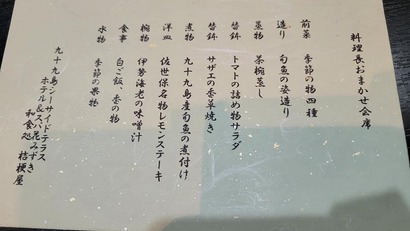 料理長おまかせ会席
前菜 季節の物四種
造り 旬魚の姿造り
蒸物 茶椀蒸し
替鉢 トマトの詰め物サラダ
替鉢 サザエの香草焼き
煮物 九十九島産旬魚の煮付け
洋皿 佐世保名物レモンステーキ
椀物 伊勢海老の味噌汁
食事 白ご飯、香の物
水物 季節の果物
九十九島シーサイドテラス
ホテル&スパ花みずき
和食処 桔梗屋